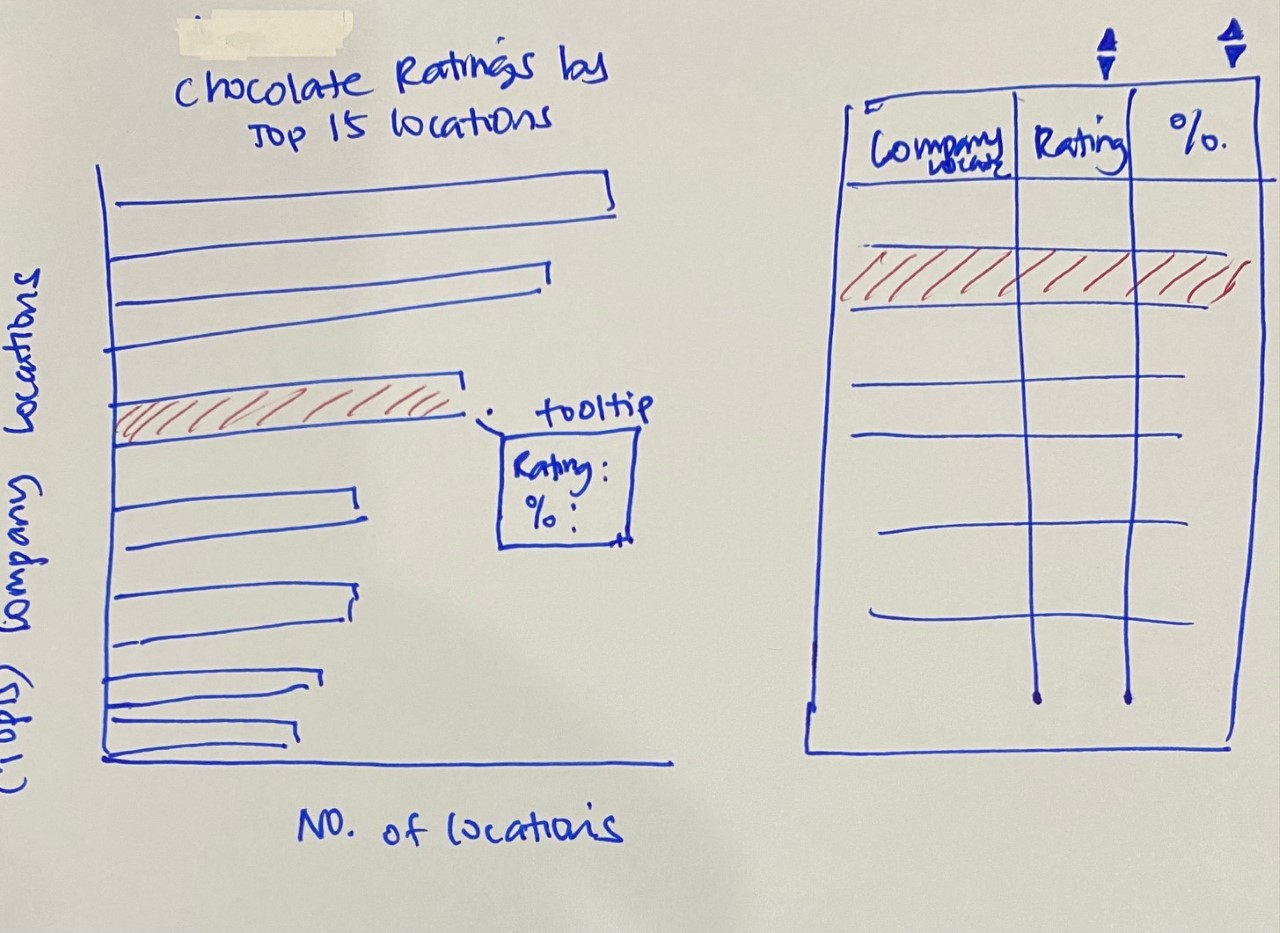 Chocolate Ratings by
Top 15 locations
(Top15) Company Locations
tooltip
Rating:
%:
No. of Locations
Company
Locate
Rating
%.